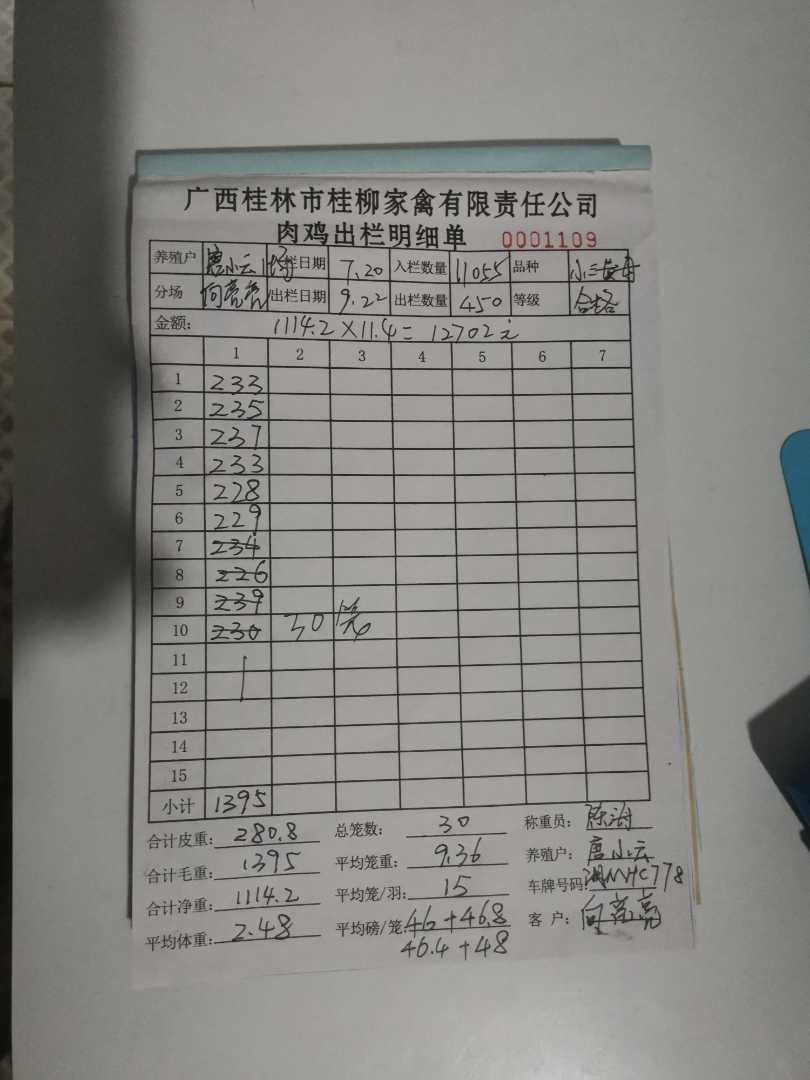 广西桂林市桂柳家禽有限责任公司
肉鸡出栏明细单 0001109
养殖户 唐小云 栏日期 7.20 入栏数量 11055 品种
分场 向亮亮 出栏日期 9.22 出栏数量 450 等级 合格
金额: 1114.2×11.4=12702元
1 2 3 4 5 6 7
1 233
2 235
3 237
4 233
5 228
6 229
7 234
8 226
9 239
10 230 30笼
11
12
13
14
15
小计 1395
合计皮重: 280.8 总笼数: 30 称重员: 陈海
合计毛重: 1395 平均笼重: 9.36 养殖户: 唐小云
合计净重: 1114.2 平均笼/羽: 15 车牌号码:
平均体重: 2.48 平均磅/笼: 46+46.8 客户: 向亮亮
46.4+48